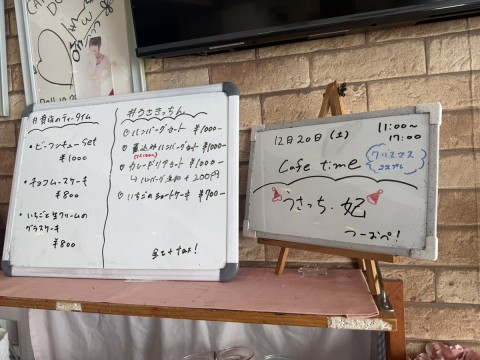 ・ビーフシチューSet
¥1000
・チョコムースケーキ
¥800
・いちごと生クリームの
グラスケーキ
¥800
#うさきっちん
ハンバーグセット ¥1000-
煮込みハンバーグセット ¥1000-
カレードリアセット ¥1000-
↳ハンバーグ追加 +200円
いちごのショートケーキ ¥700-
全て+tax!
12月20日(土)
11:00~
17:00
Cafe time
クリスマス
コスプレ
うさっち・妃
つーおぺ!